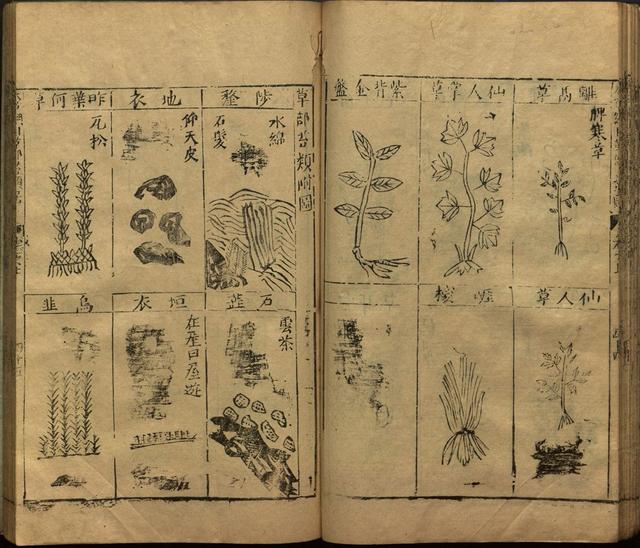 離鬲草
脾寒草
仙人掌草
紫背金盤
仙人草
崖椶
草部苔類附圖
陟釐
水綿
石髮
地衣
仰天皮
昨葉何草
瓦松
石蕋
雲茶
垣衣
在屋曰屋遊
烏韭